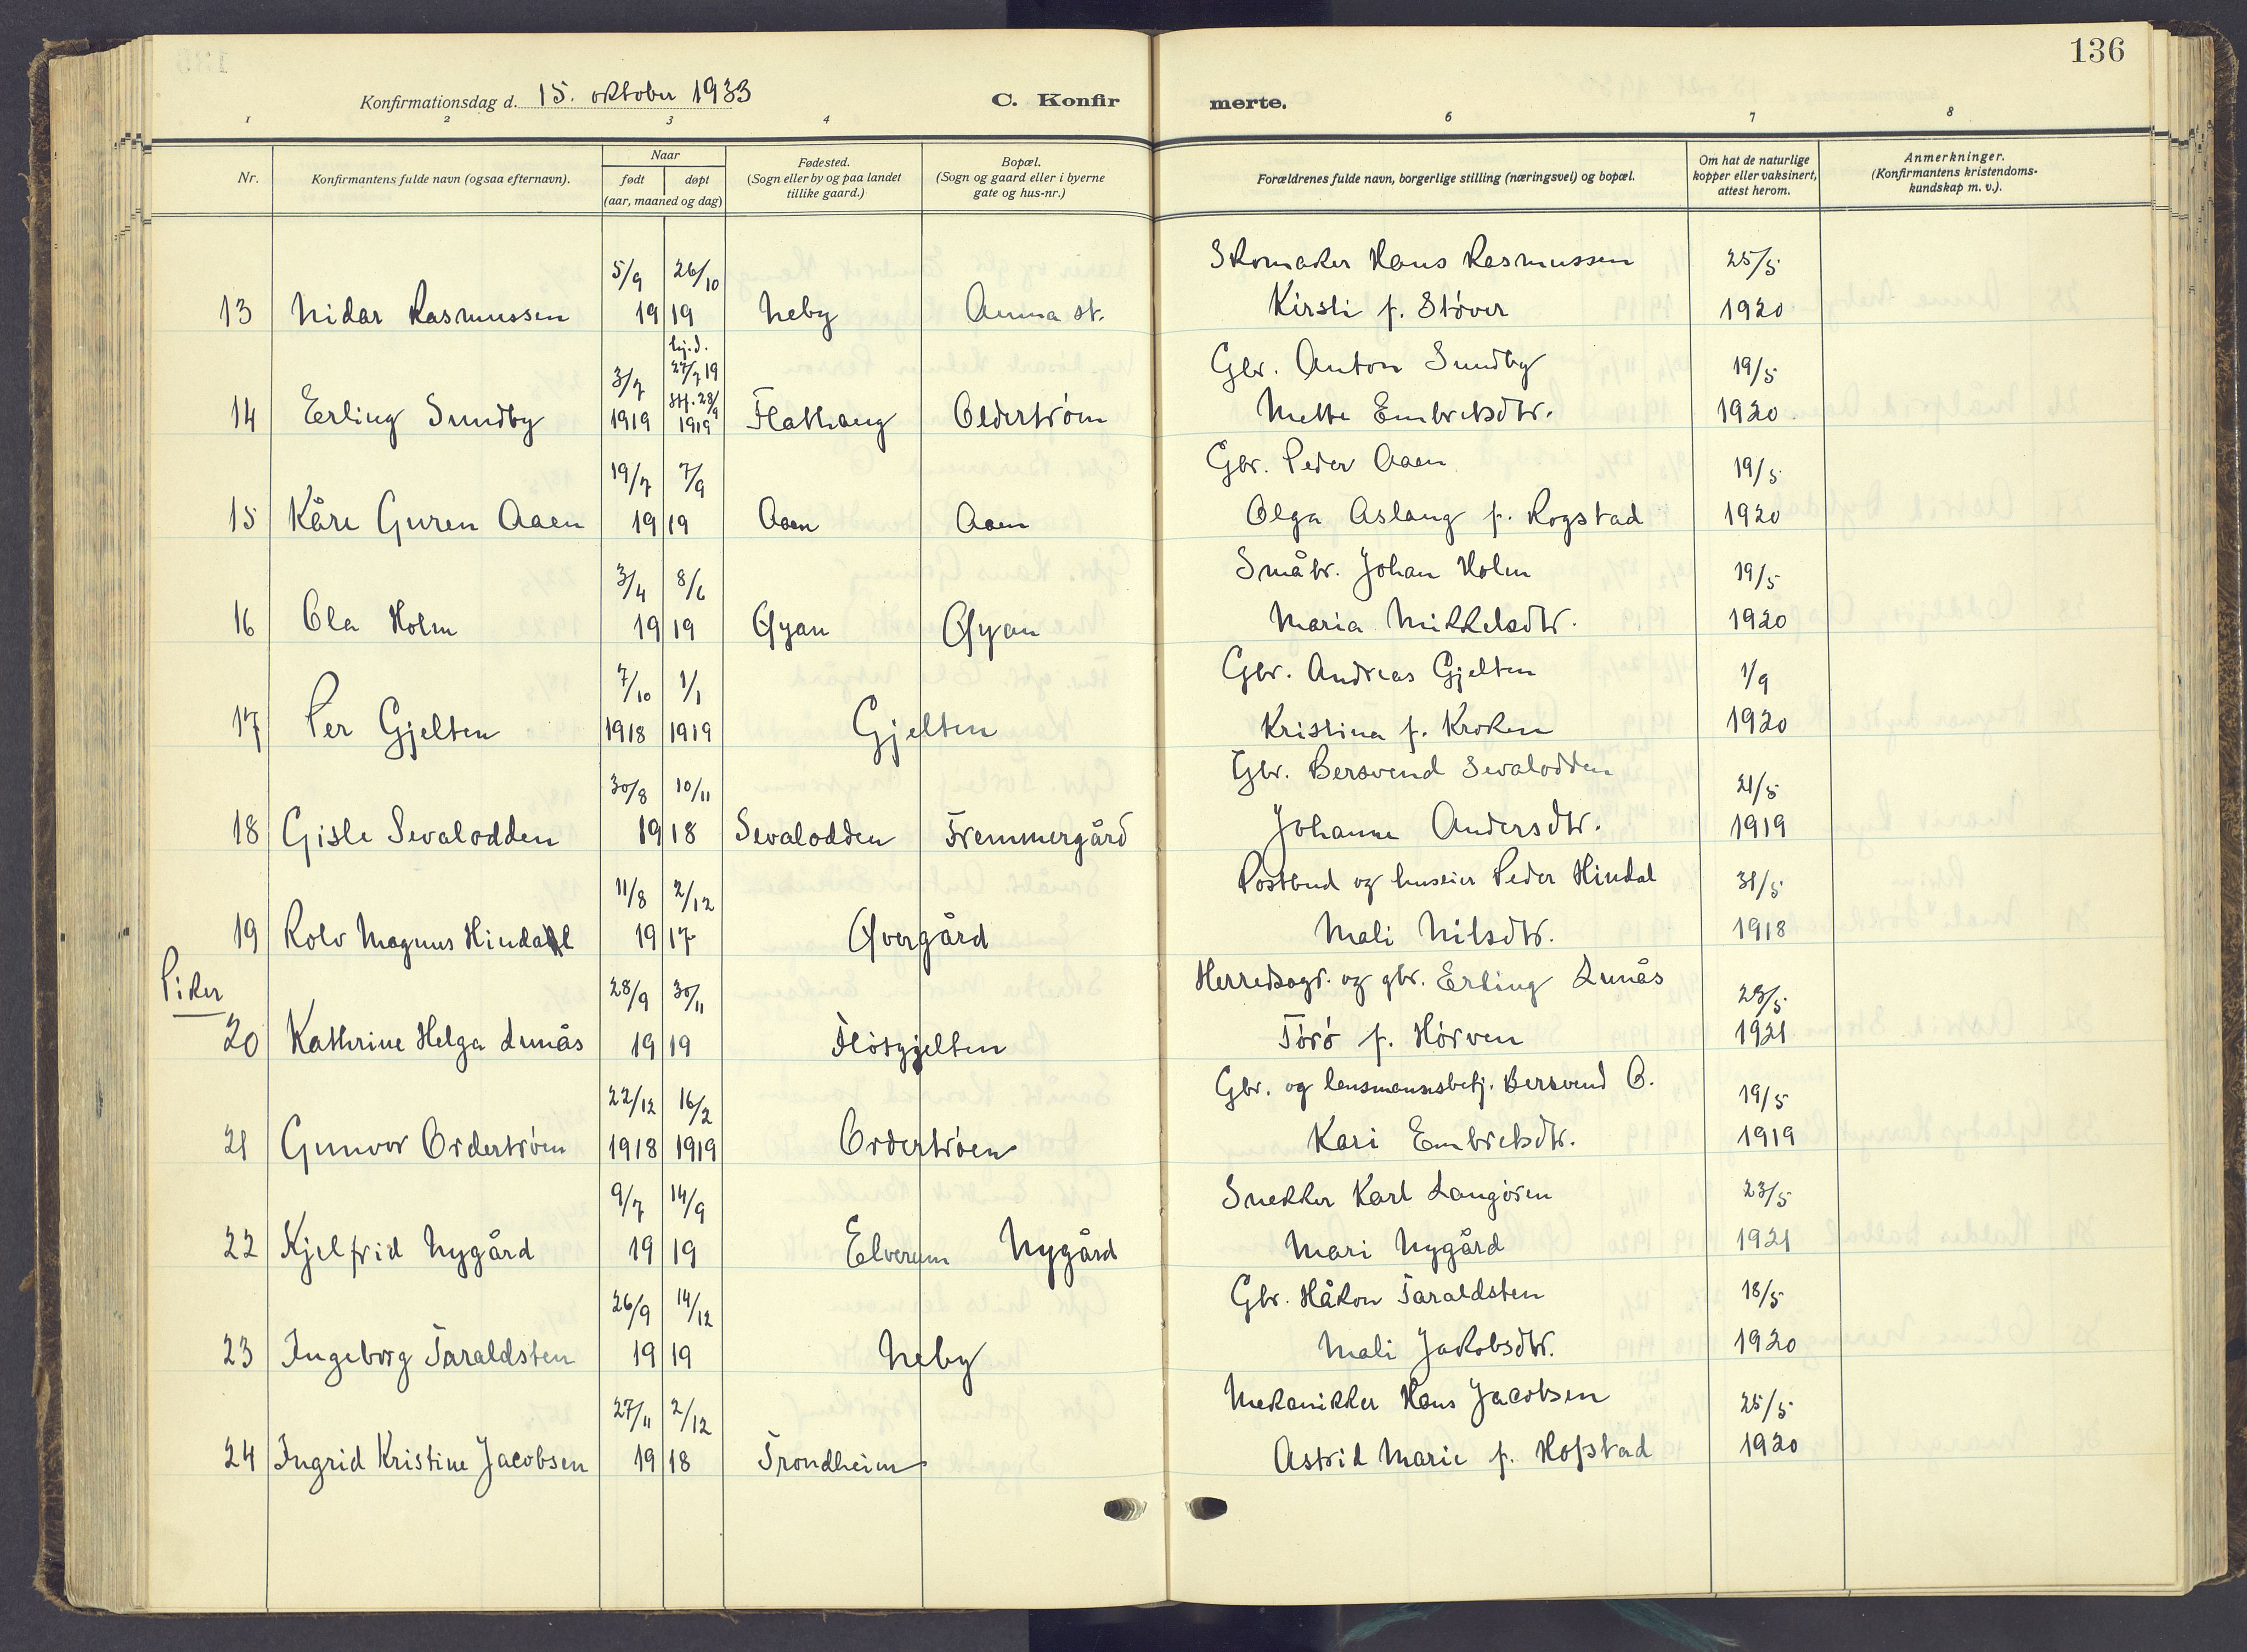 136
Konfirmationsdag d. 15. oktober 1933
C. Konfirmerte.
1 2 3 4 6 7 8
Nr.
Konfirmantens fulde navn (ogsaa efternavn).
Naar
født døpt
(aar, maaned og dag)
Fødested.
(Sogn eller by og paa landet
tillike gaard.)
Bopæl.
(Sogn og gaard eller i byerne
gate og hus-nr.)
Forældrenes fulde navn, borgerlige stilling (næringsvei) og bopæl.
Om hat de naturlige
kopper eller vaksinert,
attest herom.
Anmerkninger.
(Konfirmantens kristendoms-
kundskap m. v.).
5/9 26/10 Skomaker Hans Rasmussen 25/5
13 Nidar Rasmussen 19 19 Neby Auma st. Kirsti f. Støver 1920
hj.d.
3/7 27/7 19 Gbr. Anton Sundby 19/5
st. 28/9
14 Erling Sundby 1919 1919 Flathaug Oldertrøen Mette Embretsdtr. 1920
19/7 7/9 Gbr. Peder Aaen 19/5
15 Kåre Guren Aaen 19 19 Aaen Aaen Olga Aslaug f. Rogstad 1920
3/4 8/6 Småbr. Johan Holm 19/5
16 Ola Holm 19 19 Øyan Øyan Maria Mikkelsdtr. 1920
7/10 1/1 Gbr. Andreas Gjelten 1/9
17 Per Gjelten 1918 1919 Gjelten Kristina f. Kroken 1920
30/8 10/11 Gbr. Bersvend Sevalodden 21/5
18 Gisle Sevalodden 19 18 Sevalodden Fremmergård Johanne Andersdtr. 1919
11/8 2/12 Postbud og huseier Peder Hindal 31/5
19 Rolv Magnus Hindal 19 17 Øvergård Mali Nilsdtr. 1918
Piker
28/9 30/11 Herredsagr. og gbr. Erling Lunås 23/5
20 Kathrine Helga Lunås 19 19 Fløtgjelten Tørø f. Hørven 1921
22/12 16/2 Gbr. og lensmannsbetj. Bersvend O. 19/5
21 Gunvor Ordertrøen 1918 1919 Ordertrøen Kari Embretsdtr. 1919
9/7 14/9 Snekker Karl Langøren 23/5
22 Kjelfrid Nygård 19 19 Elverum Nygård Mari Nygård 1921
26/9 14/12 Gbr. Håkon Taraldsten 18/5
23 Ingeborg Taraldsten 19 19 Neby Mali Jakobsdtr. 1920
27/11 2/12 Mekanikker Hans Jacobsen 25/5
24 Ingrid Kristine Jacobsen 19 18 Trondheim Astrid Marie f. Hofstad 1920